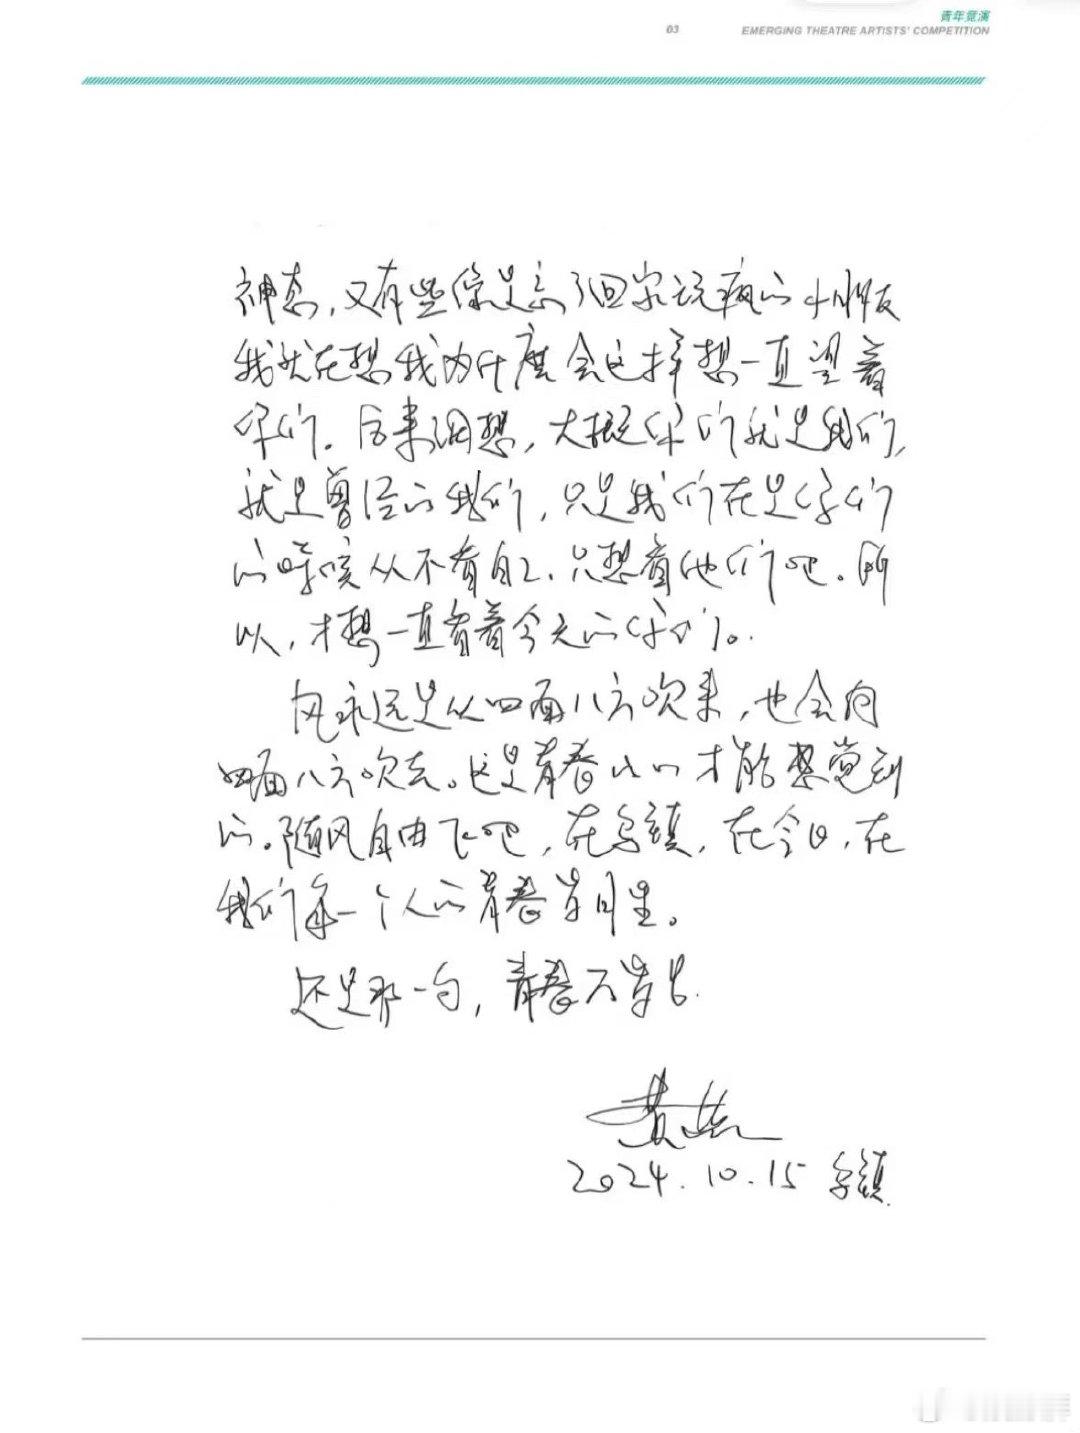 青年竞演
03 EMERGING THEATRE ARTISTS' COMPETITION
神态,又有些像是忘了回家玩疯的小朋友
我就在想我为什麽会这样想一直望着
你们。后来细想,大概你们就是我们,
就是曾经的我们,只是我们在是你们
的时候从不看自己,只想看他们吧。所
以,才想一直看着今天的你们。
风永远是从四面八方吹来,也会向
四面八方吹去。这是青春的人才能感觉到
的。随风自由飞吧,在乌镇,在今日,在
我们每一个人的青春岁月里。
还是那一句,青春万岁!
黄磊
2024.10.15 乌镇